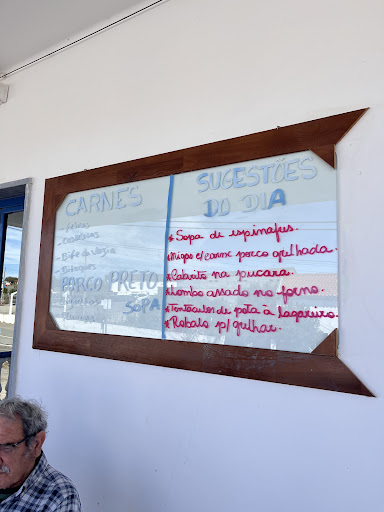 CARNES
- Febras
- Bife da vazia
- Bitoques
PORCO PRETO
SOPA
SUGESTÕES
DO DIA
* Sopa de espinafres.
* Migas c/carne porco grelhada.
* Cabrito na pucara.
* Lombo assado no forno.
* Tentáculos de pota à lagareiro.
* Robalo p/grelhar.